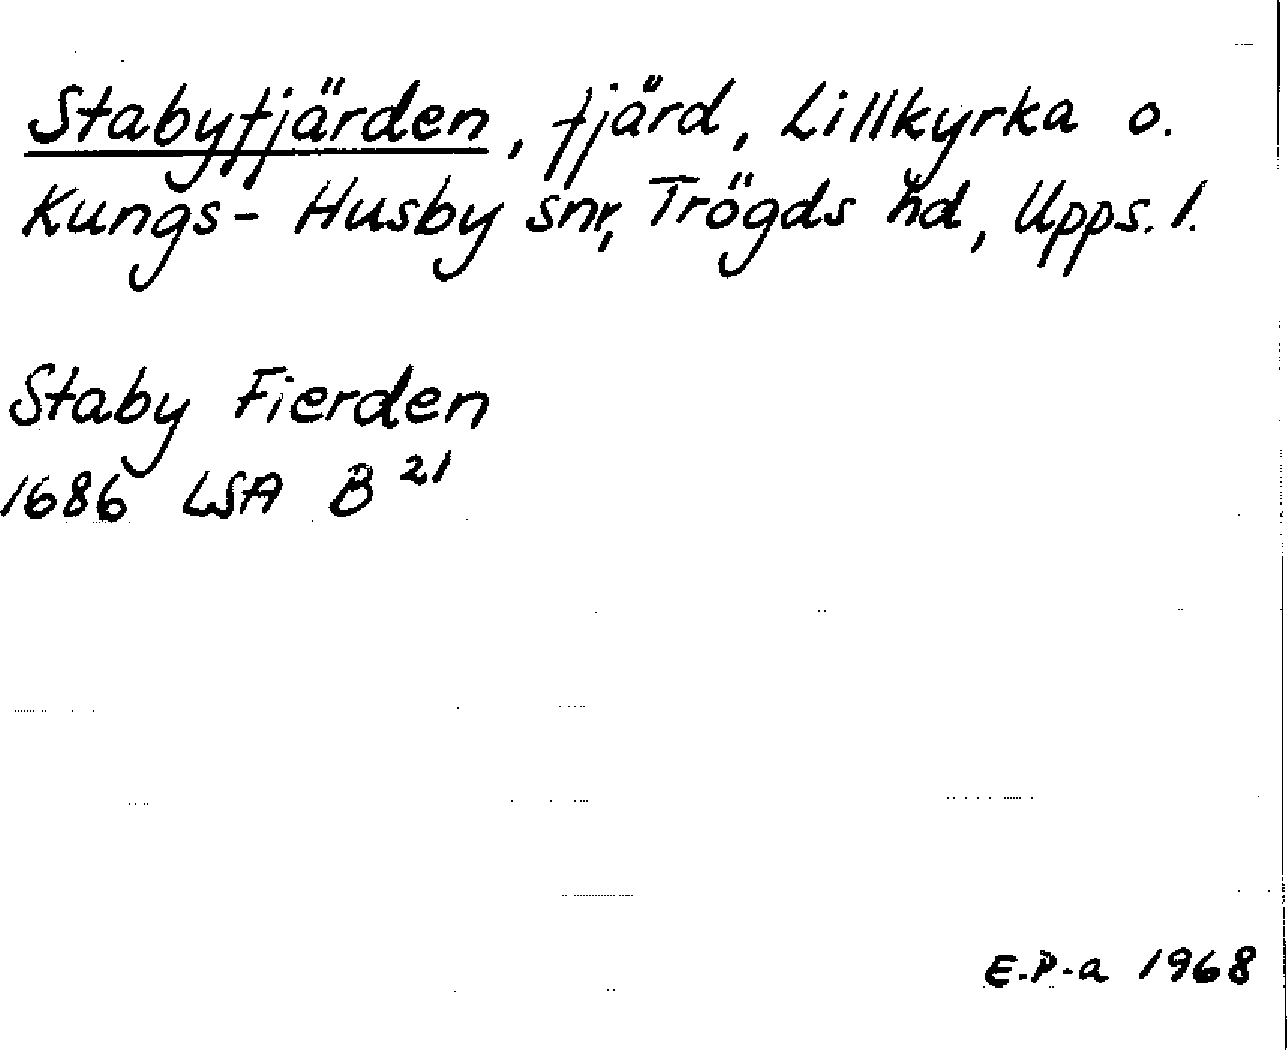 Stabyfjärden, fjärd, Lillkyrka o.
Kungs-Husby snr, Trögds hd, Upps. l.
Staby Fierden
1686 LSA B 21
E.P-a 1968